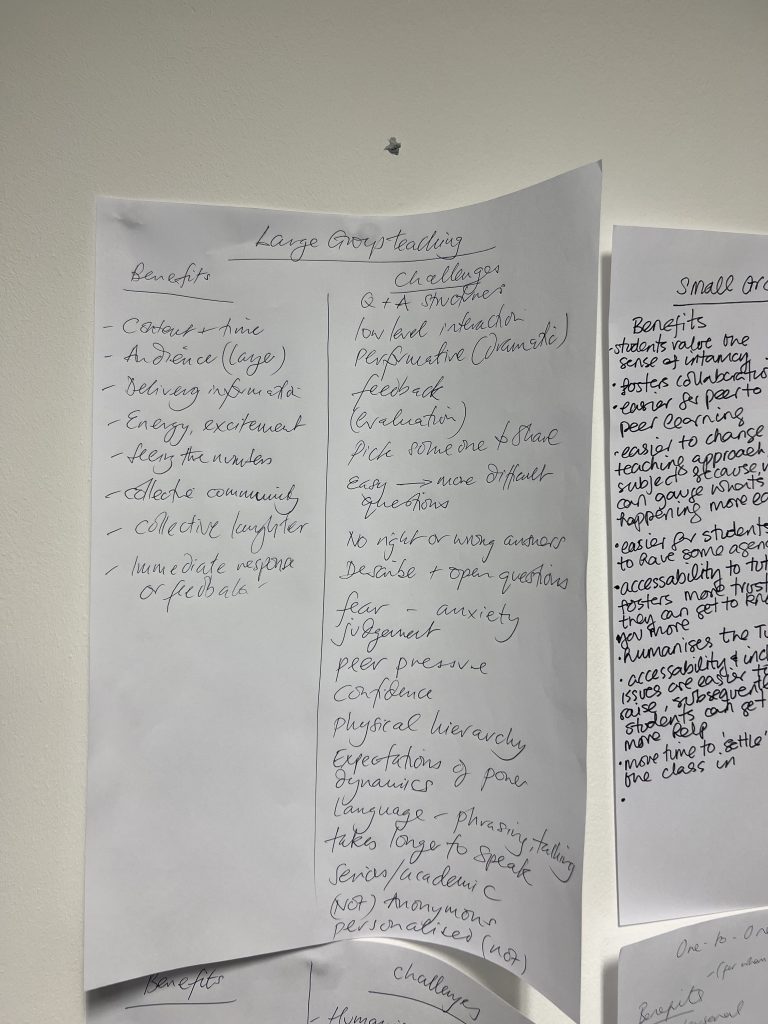 Large Group teaching
Benefits
- Content + time
- Audience (large)
- Delivering information
- Energy, excitement
- Seeing the numbers
- Collective community
- collective laughter
- Immediate response
or feedback
Challenges
Q + A structures
low level interaction
performative (dramatic)
feedback
(evaluation)
Pick someone to share
easy → more difficult
questions
No right or wrong answers
Describe + open questions
fear - anxiety
judgement
peer pressure
confidence
physical hierarchy
Expectations of power
dynamics
Language - phrasing, talking
takes longer to speak
serious/academic
(not) Anonymous
personalised (not)
Small Gro
Benefits
-students value the
sense of intamcy
• fosters collaboratio
• easier for peer to
peer learning
• easier to change
teaching approach
subjects because, w
can gauge whats
happening more ea
• easier for students
to have some agen
• accessability to tut
fosters more trust
they can get to kno
you more
• humanises the Tu
• accessability + incl
issues are easier to
raise, subsequentl
students can get
more help
• more time to 'settle'
the class in
•
Benefits
Challenges
- Humani
One-to-One
Benefits